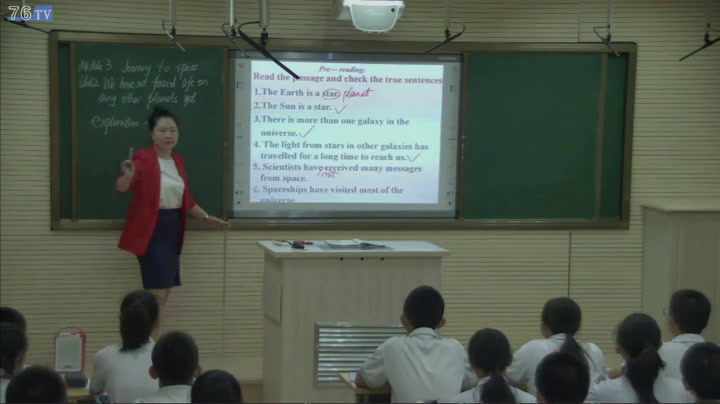 76TV
Module 3 Journey to space
Unit 2 We have not found life on
any other planets yet
exploration
Pre—reading:
Read the passage and check the true sentences
1.The Earth is a star. planet
2.The Sun is a star. ✓
3.There is more than one galaxy in the
universe. ✓
4. The light from stars in other galaxies has
travelled for a long time to reach us. ✓
5. Scientists have received many messages
not
from space.
6. Spaceships have visited most of the
universe.